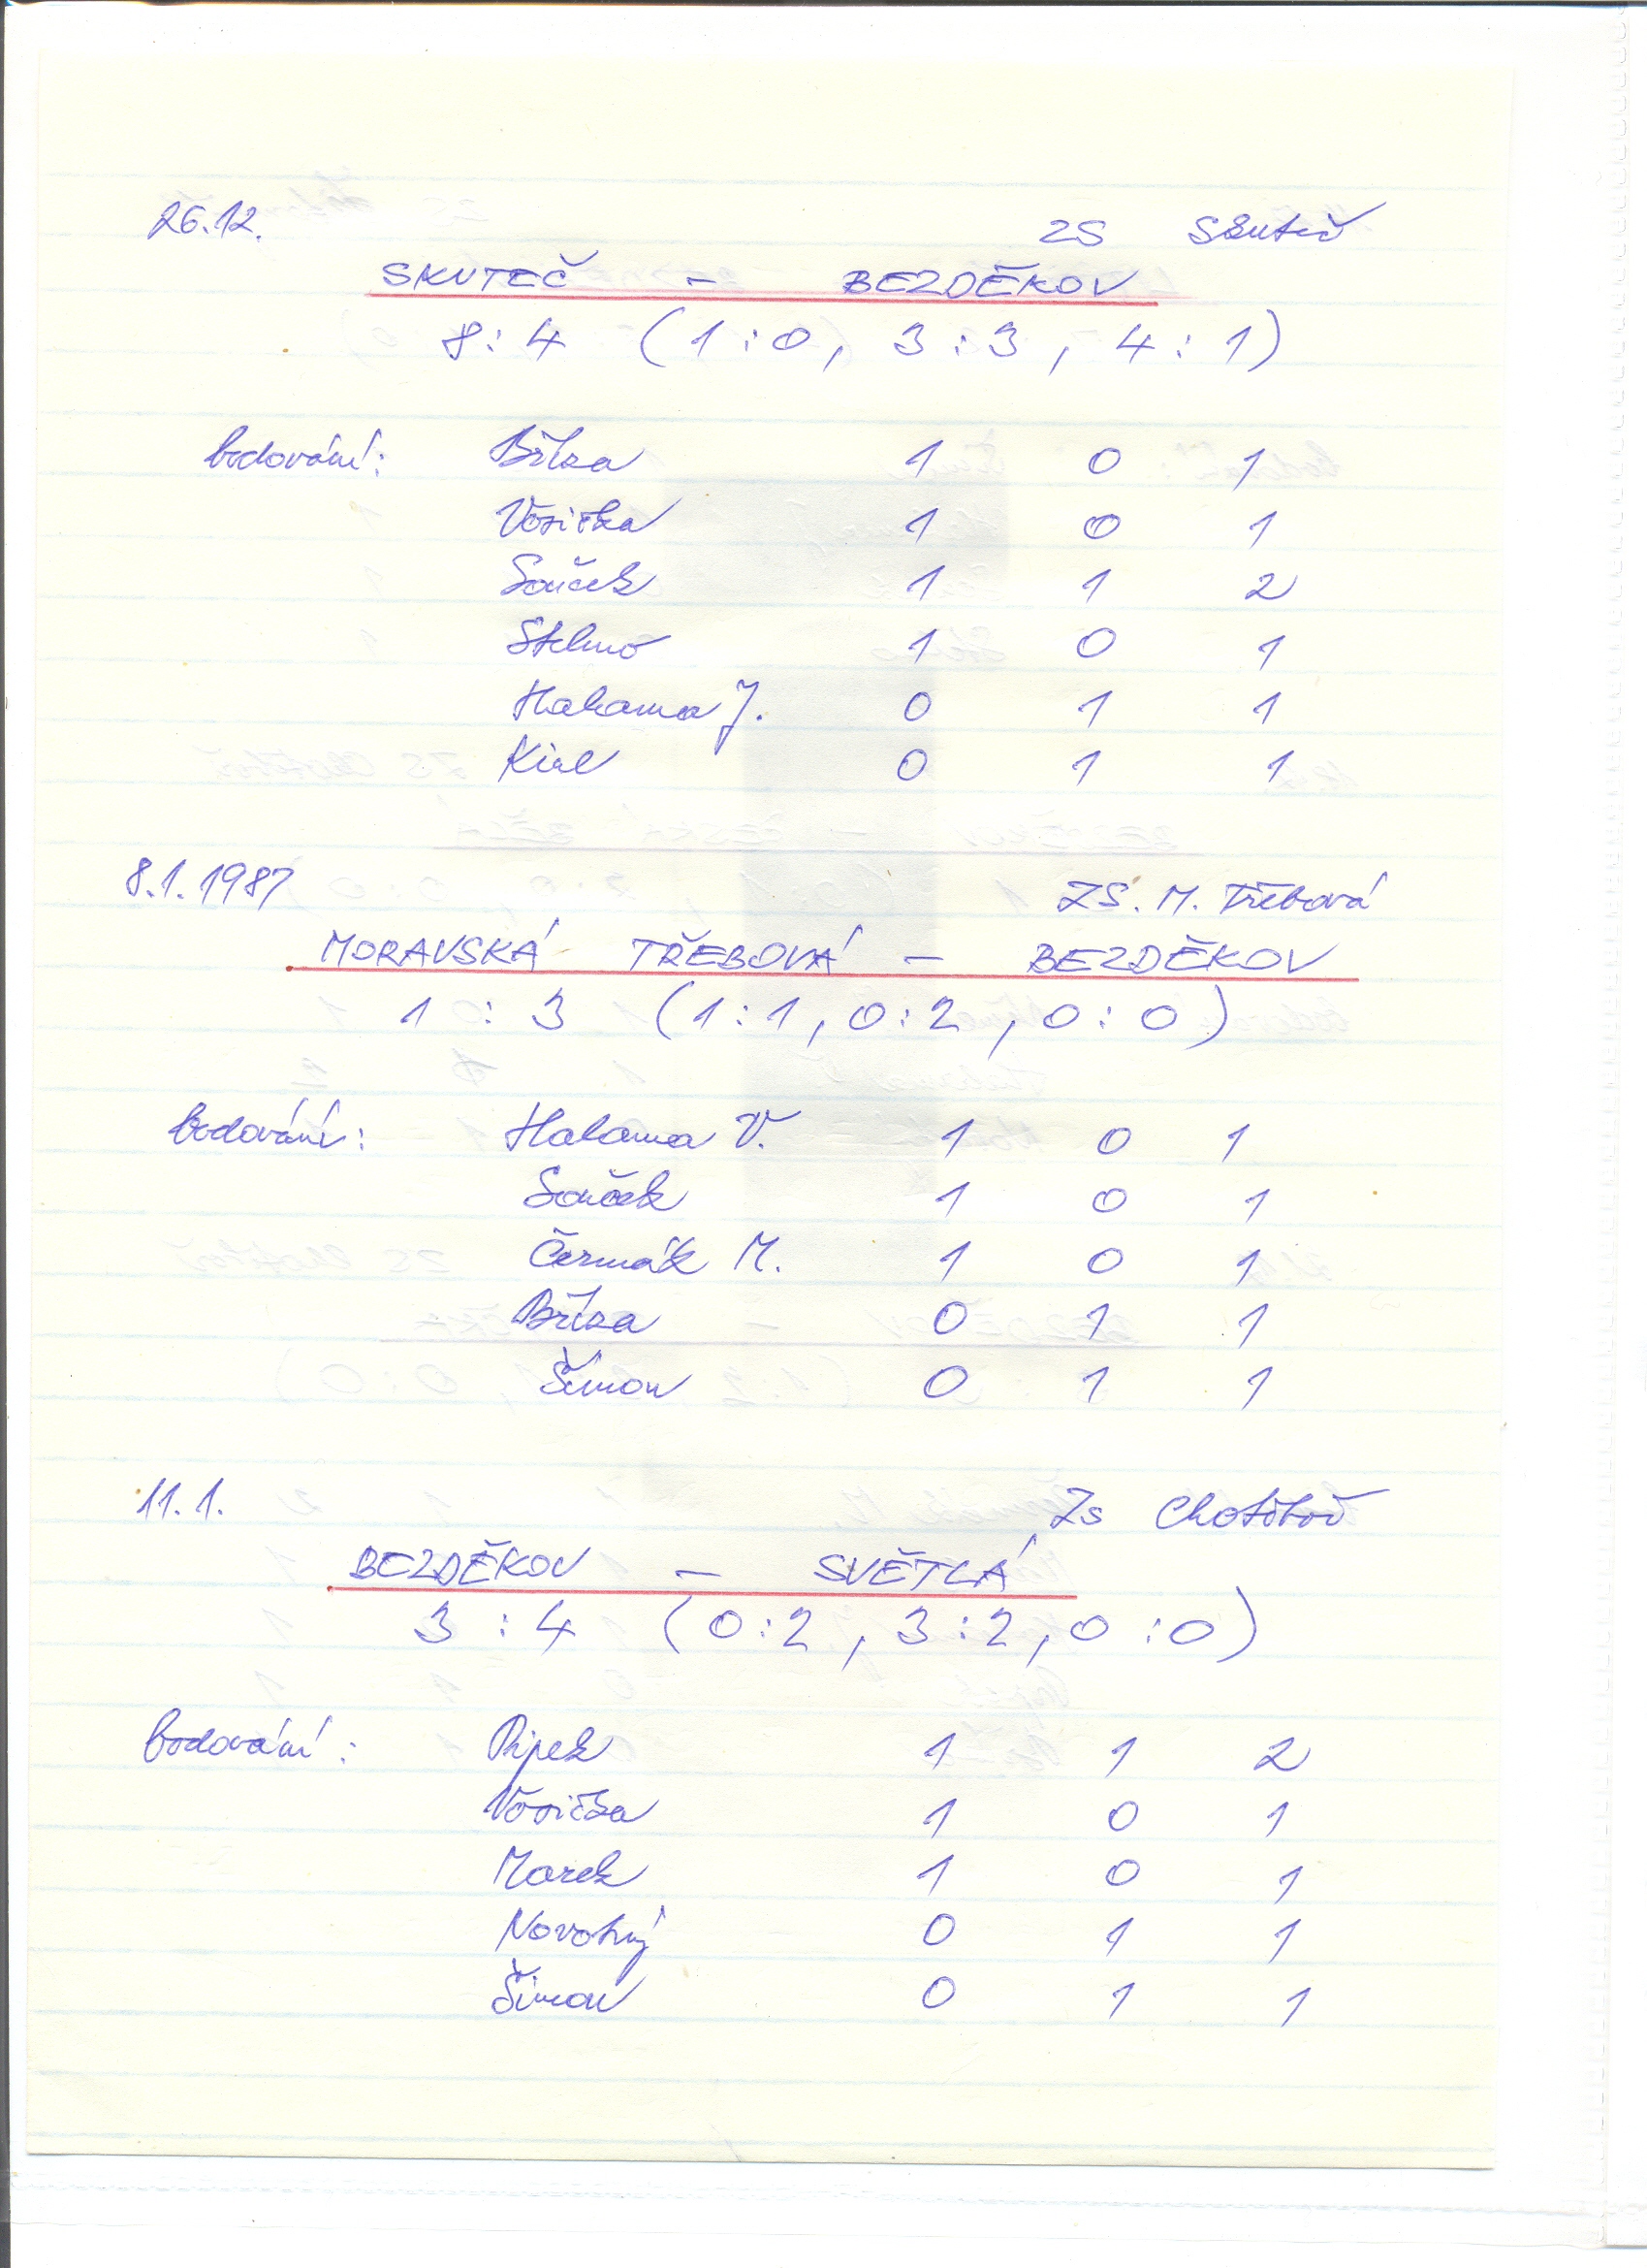 26.12. ZS Skuteč
SKUTEČ - BEZDĚKOV
8:4 (1:0, 3:3, 4:1)
bodování: Bříza 1 0 1
Vosička 1 0 1
Souček 1 1 2
Stehno 1 0 1
Halama J. 0 1 1
Kinl 0 1 1
8.1.1987 ZS. M. Třebová
MORAVSKÁ TŘEBOVÁ - BEZDĚKOV
1:3 (1:1, 0:2, 0:0)
bodování: Halama V. 1 0 1
Souček 1 0 1
Čermák M. 1 0 1
Bříza 0 1 1
Šimon 0 1 1
11.1. Zs Chotěboř
BEZDĚKOV - SVĚTLÁ
3:4 (0:2, 3:2, 0:0)
bodování: Pipek 1 1 2
Vosička 1 0 1
Marek 1 0 1
Novotný 0 1 1
Šimon 0 1 1